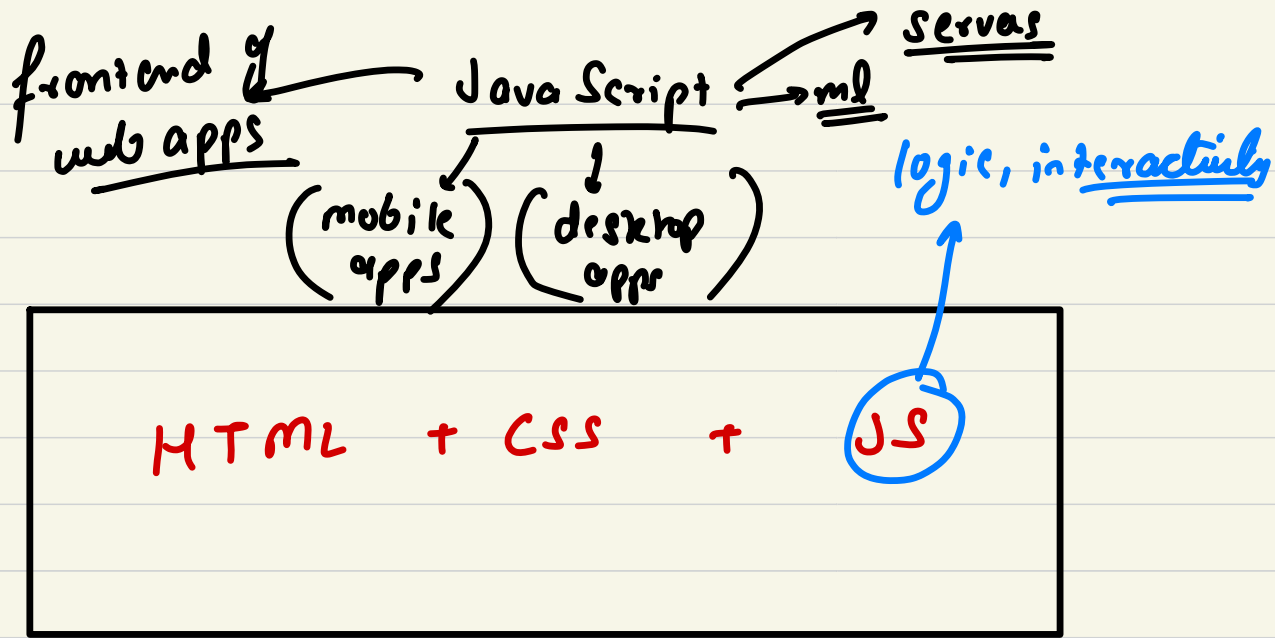 servers
frontend of
web apps
JavaScript
ml
logic, interactivity
mobile
apps
desktop
apps
HTML + CSS + JS